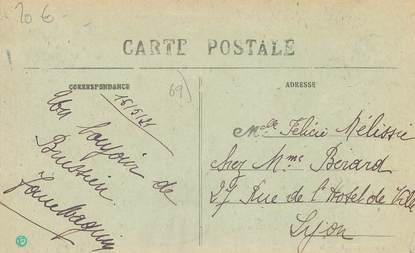 20 6
CARTE POSTALE
CORRESPONDANCE
ADRESSE
69)
15/5/21
Un bonjour de
Bussien.
Melle Félicie Mélissie
chez Mme Bérard
27 Rue de l'Hotel de Ville
Lyon